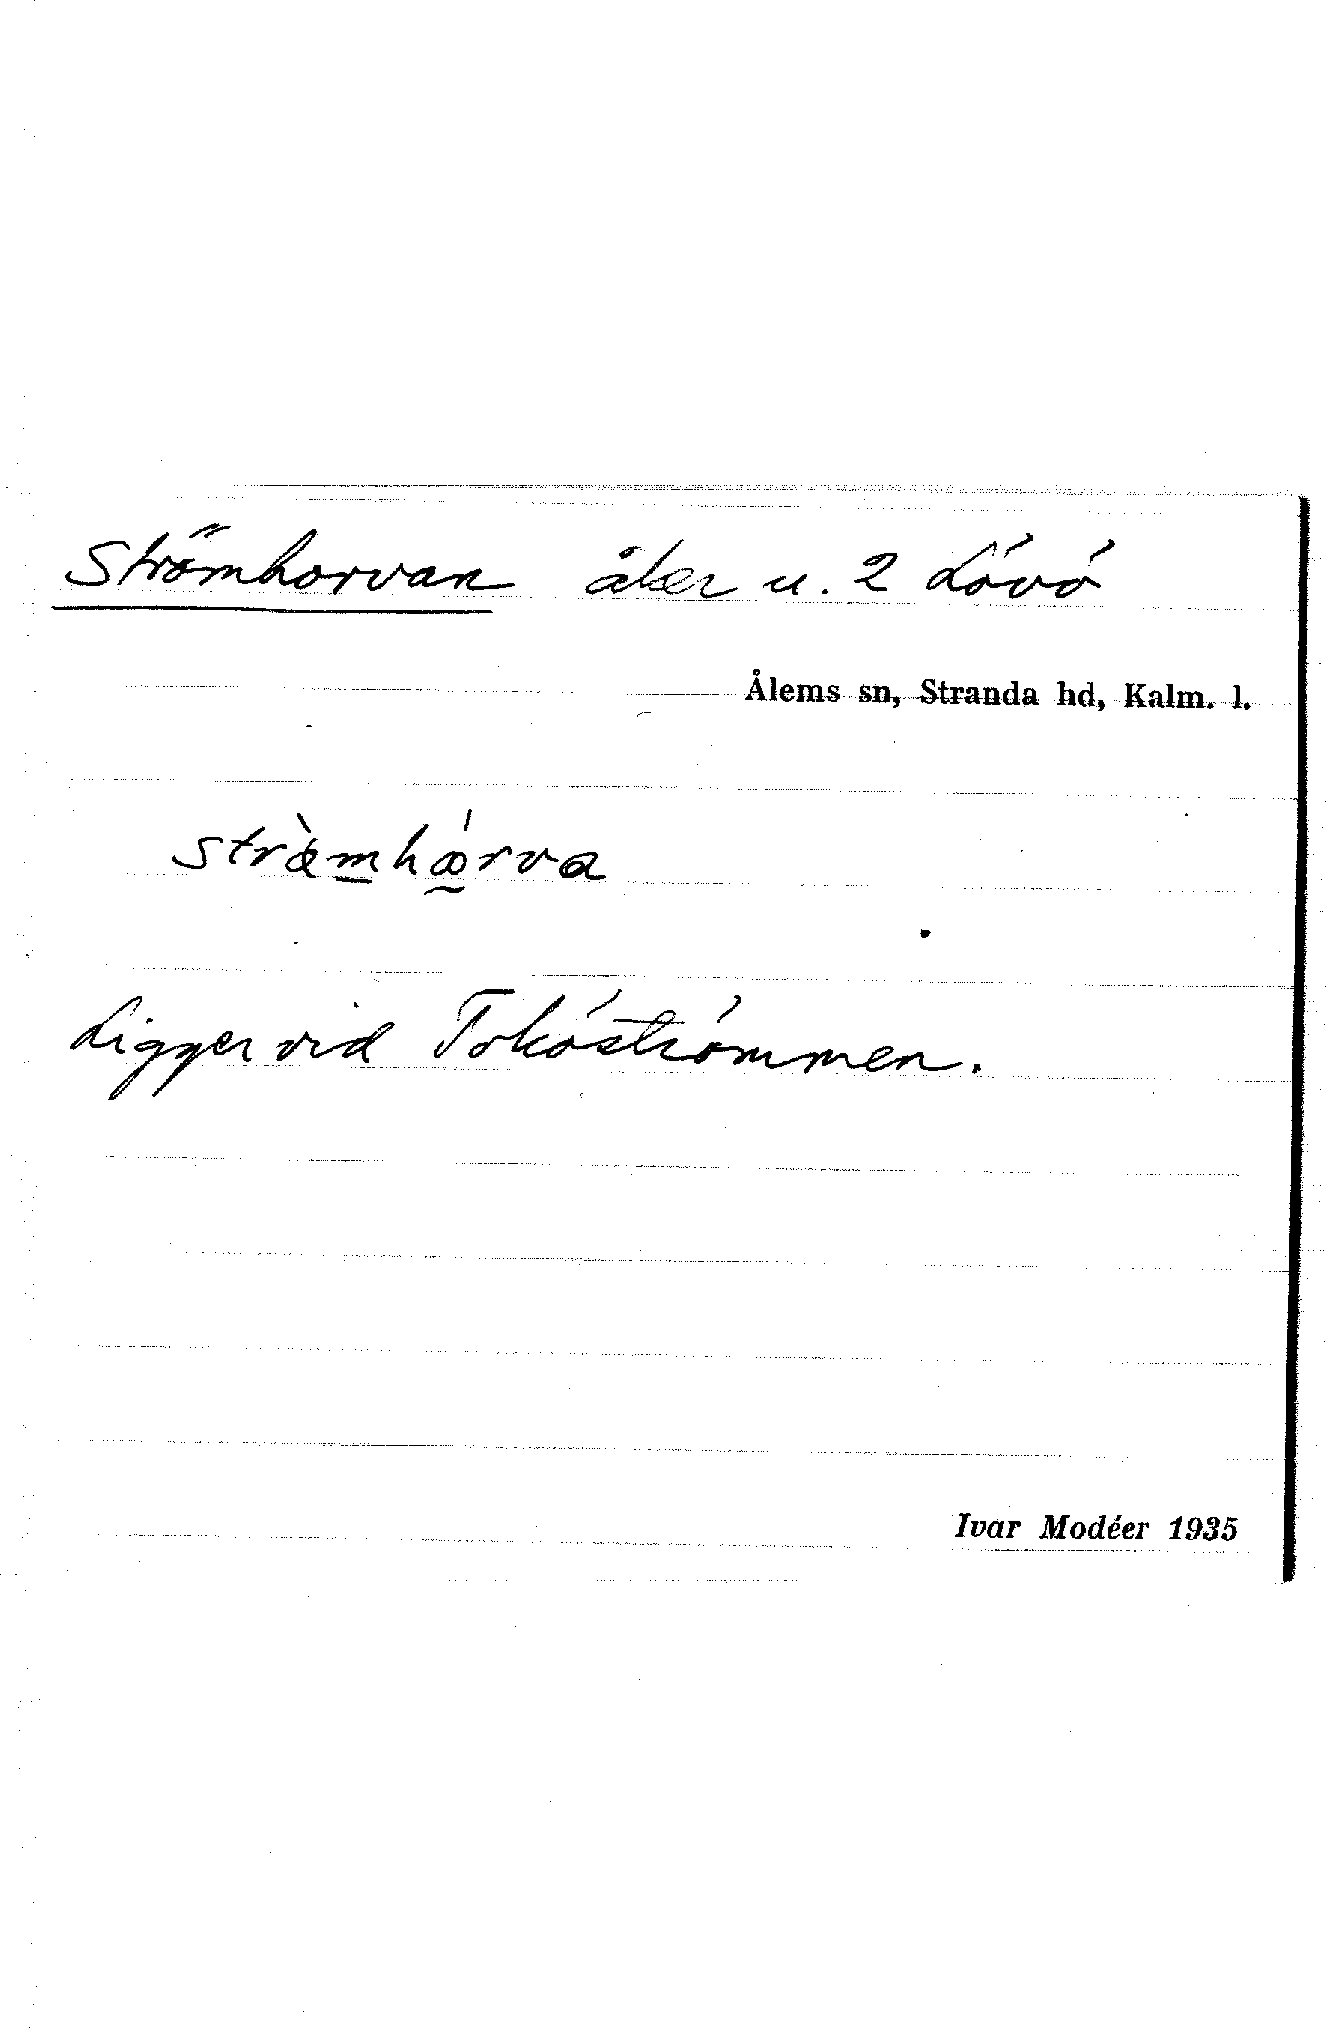 Strömhorvan åker u. 2 Lövö
Ålems sn, Stranda hd, Kalm. l.
Ligger vid Toköströmmen.
Ivar Modéer 1935